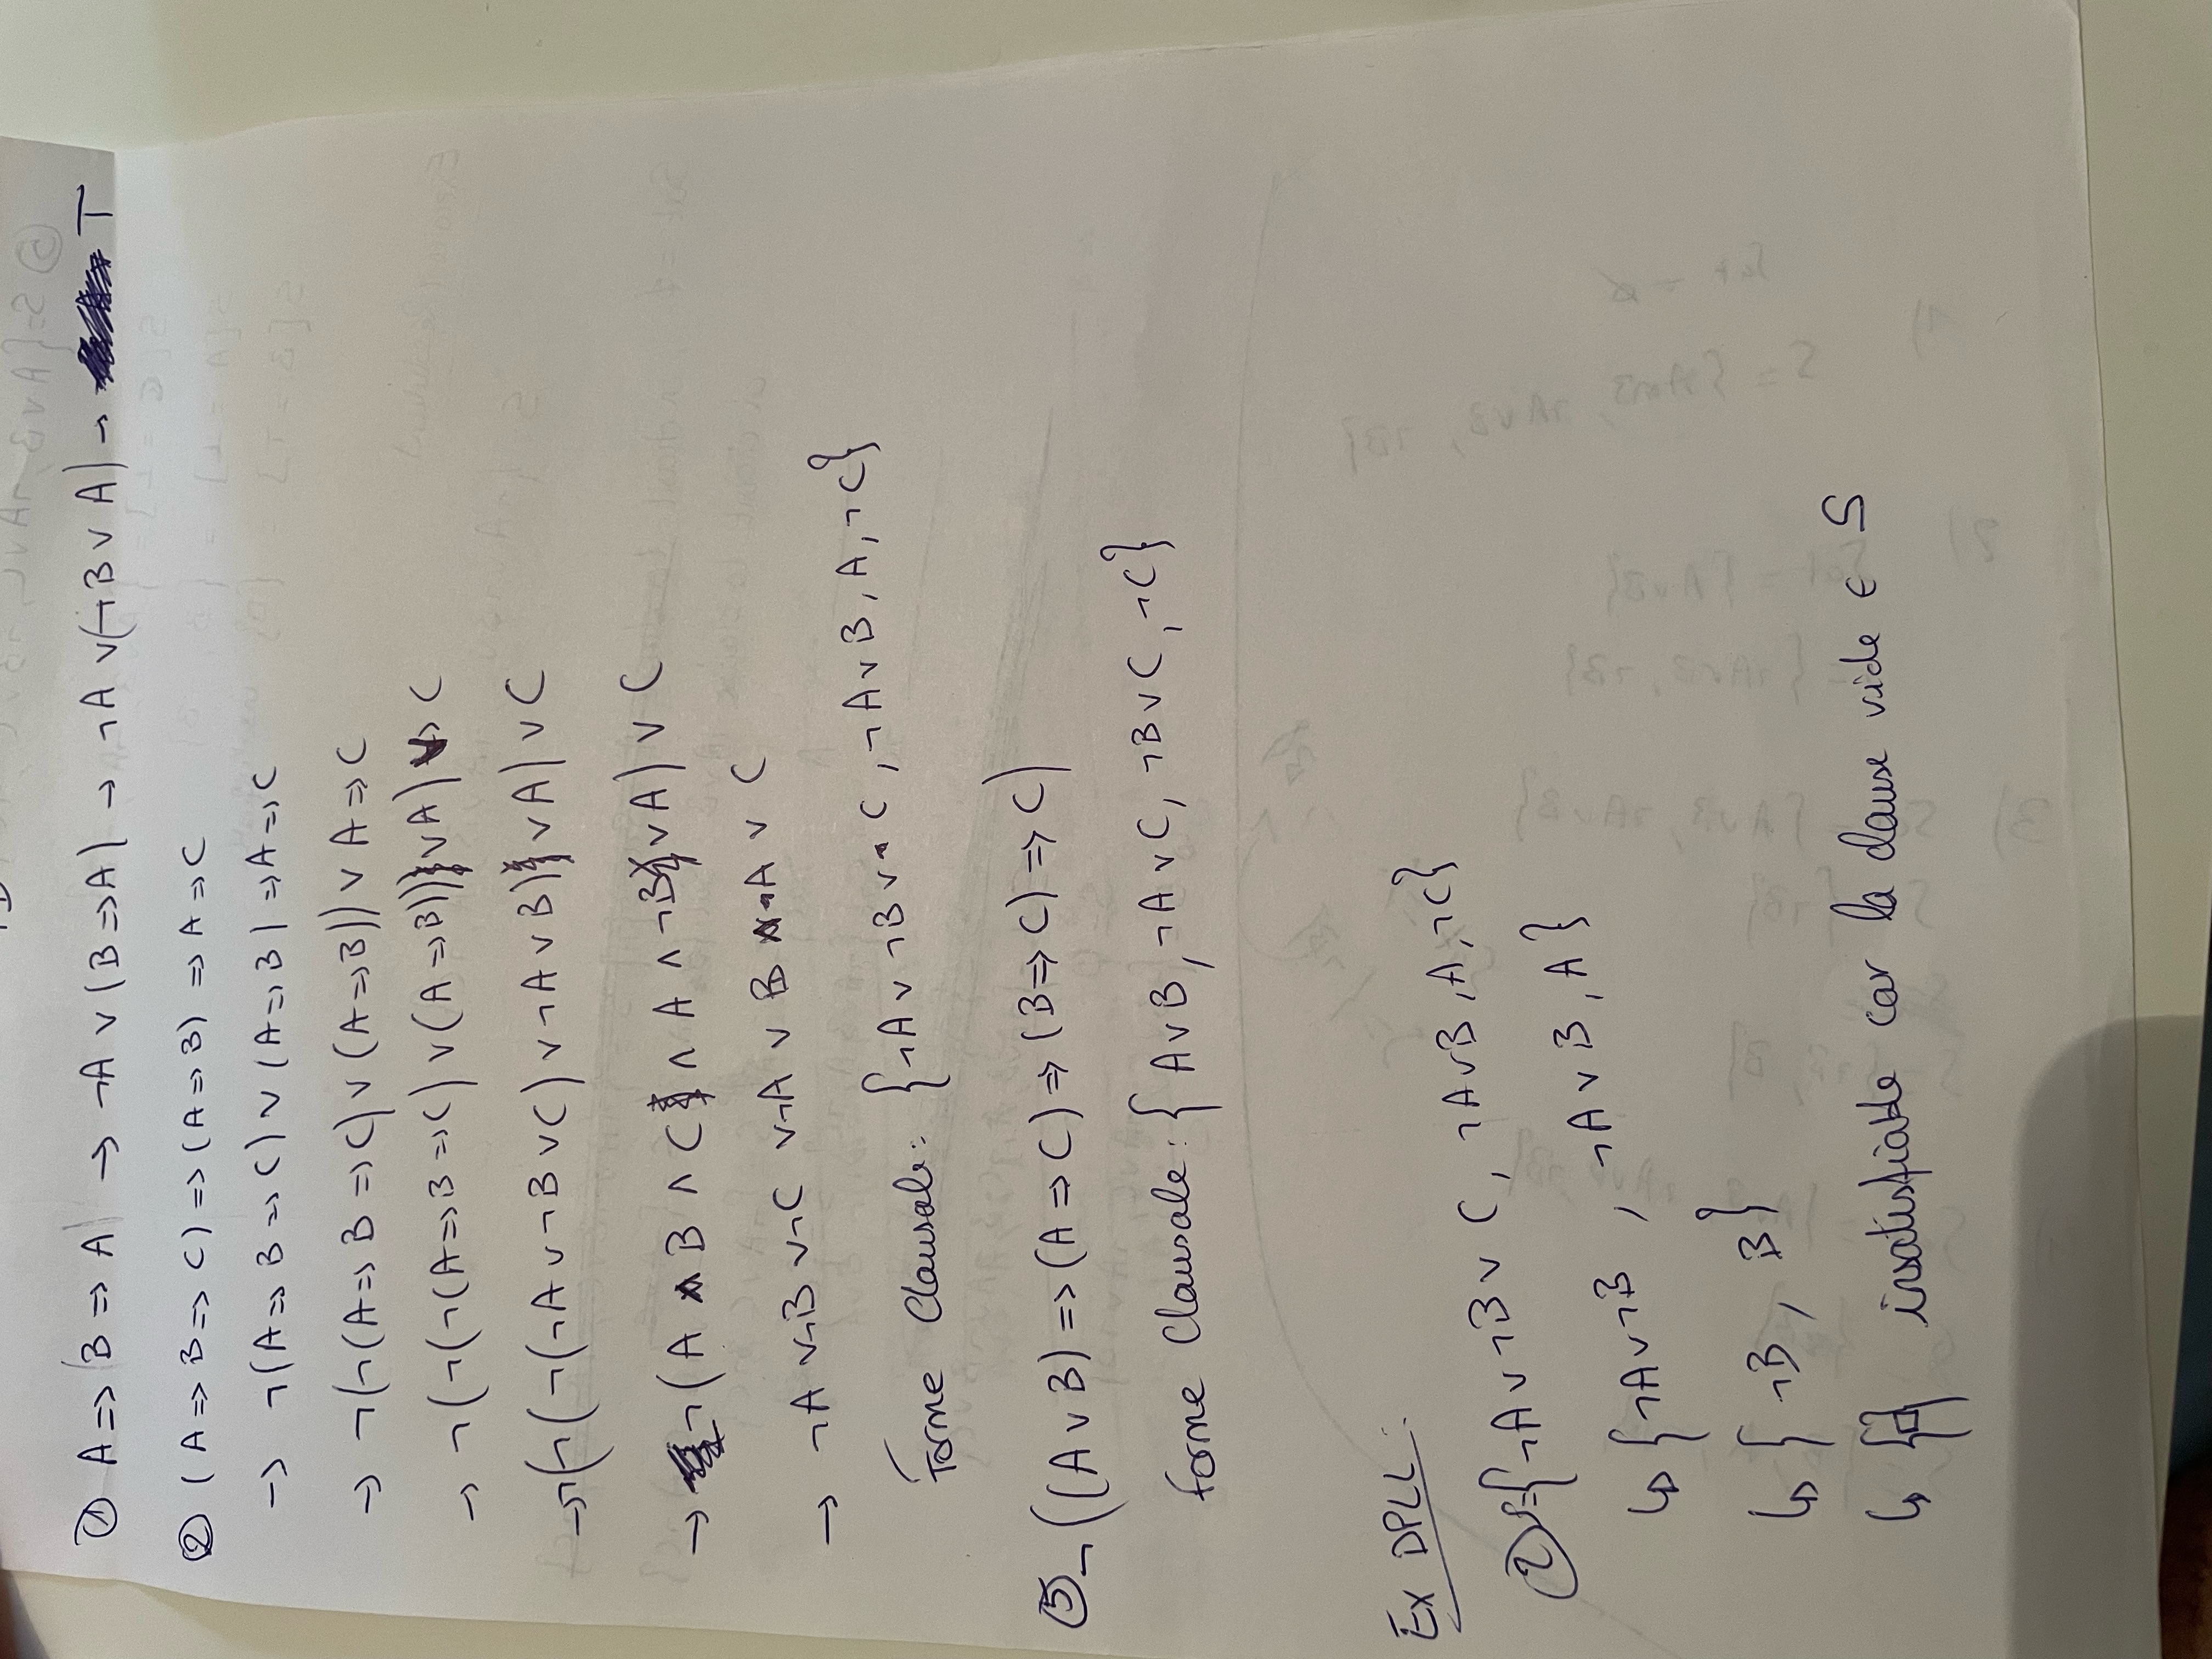 ① A => (B => A) → ¬A ∨ (B => A) → ¬A ∨ (¬B ∨ A) → T
② (A => B => C) => (A => B) => A => C
→ ¬(A => B => C) ∨ (A => B) => A => C
→ ¬(¬(A => B => C) ∨ (A => B)) ∨ A => C
→ ¬(¬(¬(A => B => C) ∨ (A => B)) ∨ A) ∨ C
→ ¬(¬(¬(¬A ∨ ¬B ∨ C) ∨ ¬A ∨ B) ∨ A) ∨ C
→ ¬(A ∧ B ∧ C ∧ A ∧ ¬B ∨ A) ∨ C
→ ¬A ∨ ¬B ∨ ¬C ∨ ¬A ∨ B ∧ ¬A ∨ C
Forme Clausale : {¬A ∨ ¬B ∨ C, ¬A ∨ B, A, ¬C}
⑤ ¬((A ∨ B) => (A => C) => (B => C) => C)
forme Clausale : {A ∨ B, ¬A ∨ C, ¬B ∨ C, ¬C}
Ex DPLL :
② S={¬A ∨ ¬B ∨ C, ¬A ∨ B, A, ¬C}
↳ {¬A ∨ ¬B , ¬A ∨ B, A}
↳ {¬B, B}
↳ {□} insatisfiable car la clause vide ∈ S